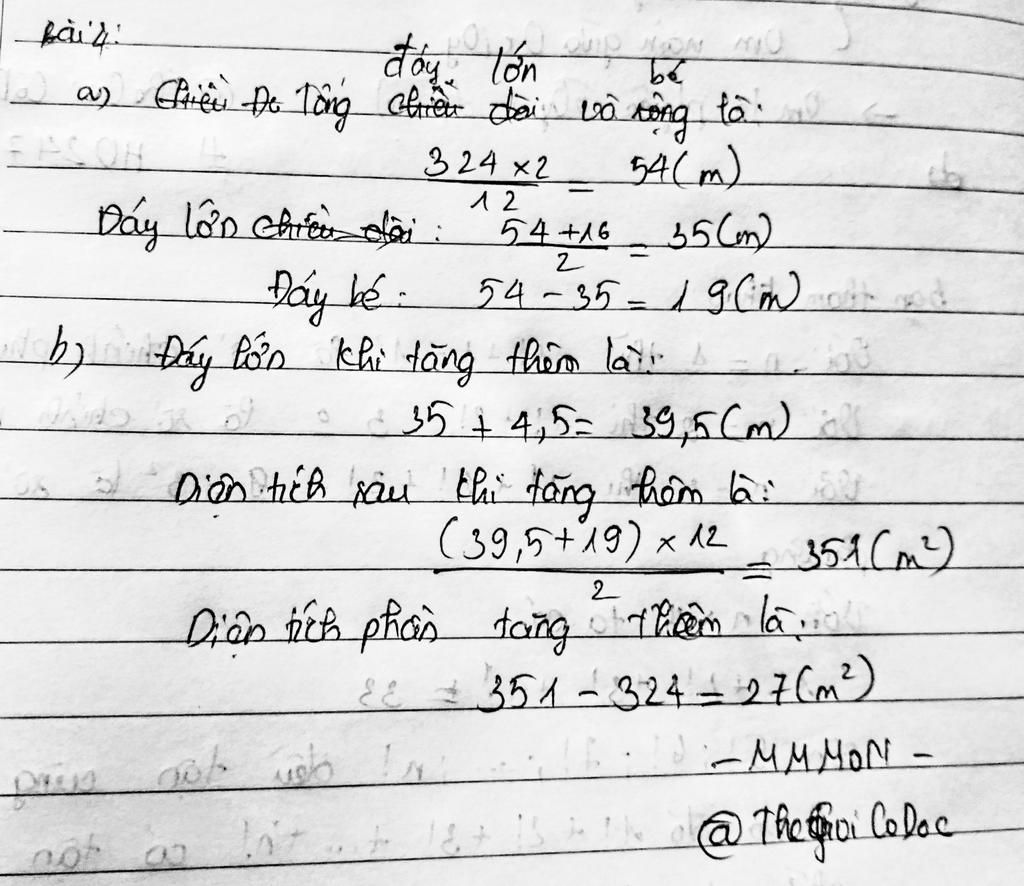 Bài 4:
đáy lớn bé
a) Chiều Đc Tổng chiều dài và rộng là:
324 × 2 / 12 = 54 (m)
Đáy lớn chiều dài : 54 + 16 / 2 = 35 (m)
Đáy bé : 54 - 35 = 19 (m)
b) Đáy lớn khi tăng thêm là:
35 + 4,5 = 39,5 (m)
Diện tích sau khi tăng thêm là:
(39,5 + 19) × 12 / 2 = 351 (m²)
Diện tích phần tăng thêm là:
351 - 324 = 27 (m²)
- MMMON -
@TheGioiCoDoc